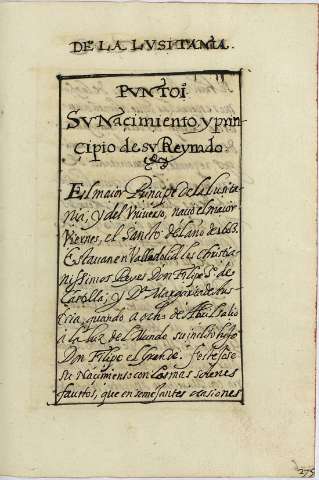 DE LA LVSITANIA.
PVNTO I
SV Naçimiento, y prin
çipio de sv Reynado
El maior Prinçipe de la Lusita
nia, y del Vniuerso, naçió el maior
Viernes, el Santo del año de 1605.
Estauan en Valladolid los Christia
nissimos Reyes Don Filipe 3º de
Castilla; y Dª Margarita de Aus
tria, quando a ocho de Abril salio
a la luz del Mundo su inclito hijo
Don Filipe el Grande. festejose
su Naçimiento con las mas solenes
faustos, que en semejantes ocasiones
275